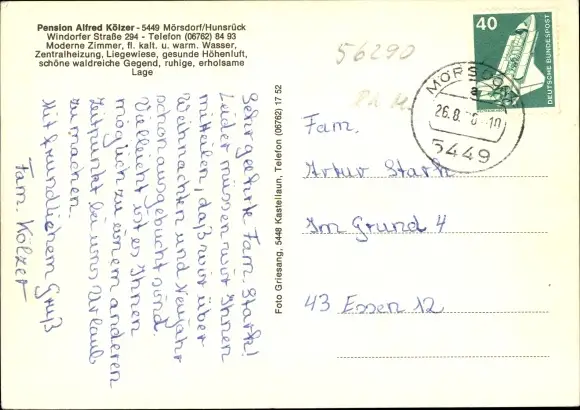 Pension Alfred Kölzer - 5449 Mörsdorf/Hunsrück
Windorfer Straße 294 - Telefon (06762) 84 93
Moderne Zimmer, fl. kalt. u. warm. Wasser,
Zentralheizung, Liegewiese, gesunde Höhenluft,
schöne waldreiche Gegend, ruhige, erholsame
Lage
Sehr geehrte Fam. Stark!
Leider müssen wir Ihnen
mitteilen, daß wir über
Weihnachten und Neujahr
schon ausgebucht sind.
Vielleicht ist es Ihnen
möglich zu einem anderen
Zeitpunkt bei uns Urlaub
zu machen.
Mit freundlichem Gruß
Fam. Kölzer
Foto Griesang, 5448 Kastellaun, Telefon (06762) 17 52
56290
40
DEUTSCHE BUNDESPOST
MÖRSDORF
a
26.8.
5449
Fam.
Artur Stark
Im Grund 4
43 Essen 12